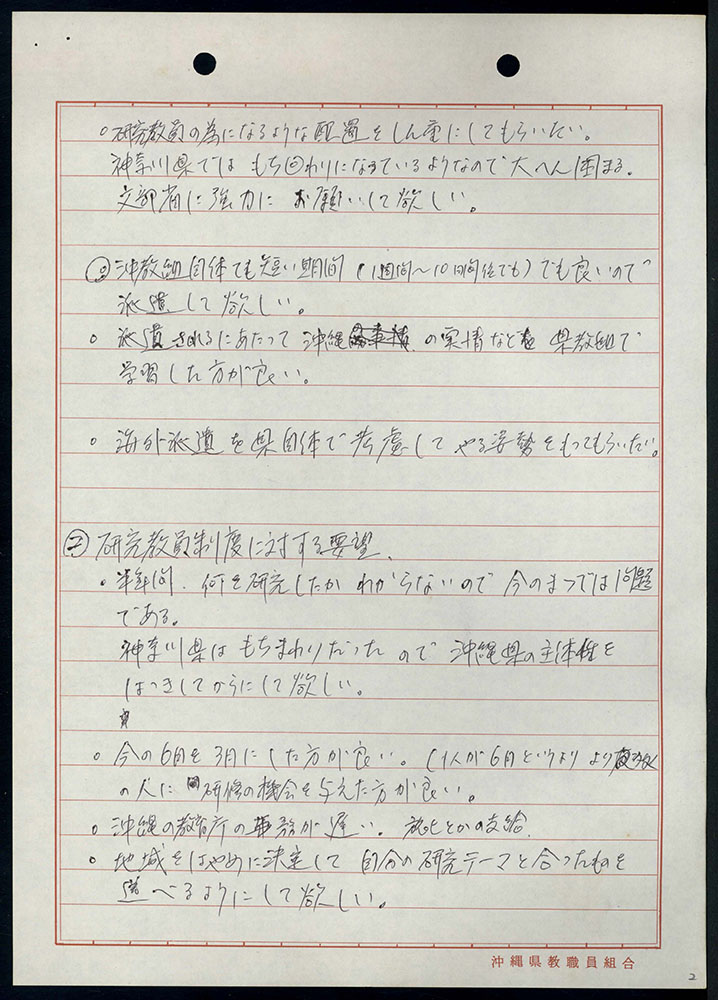 ○研究教員の為になるような配置をしん重にしてもらいたい。
神奈川県ではもち回わりになっているようなので大へん困まる。
文部省に強力にお願いして欲しい。
○沖教組自体でも短い期間(1週間〜10日間位でも)でも良いので
派遣して欲しい。
○派遣されるにあたって沖縄の実情などを県教組で
学習した方が良い。
○海外派遣を県自体で考慮してやる姿勢をもってもらいたい。
②研究教員制度に対する要望、
・半年間、何を研究したかわからないので今のまゝでは問題
である。
神奈川県はもちまわりだったので沖縄県の主体性を
はっきしてからにして欲しい。
○今の6月を3月にした方が良い。(1人が6月というよりより多く
の人に研修の機会を与えた方が良い。
○沖縄の教育庁の事務が遅い。旅とかの支給
○地域をはやめに決定して自分の研究テーマと合ったものを
選べるようにして欲しい。
沖縄県教職員組合
2